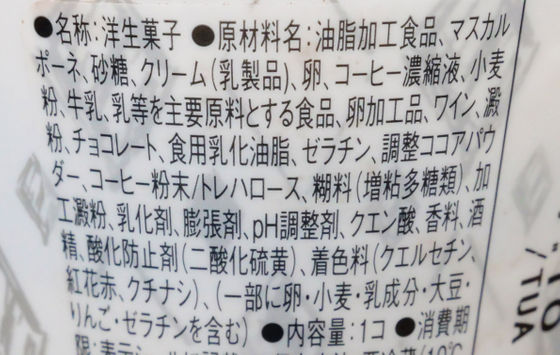 ●名称:洋生菓子 ●原材料名:油脂加工食品、マスカル
ポーネ、砂糖、クリーム(乳製品)、卵、コーヒー濃縮液、小麦
粉、牛乳、乳等を主要原料とする食品、卵加工品、ワイン、澱
粉、チョコレート、食用乳化油脂、ゼラチン、調整ココアパウ
ダー、コーヒー粉末/トレハロース、糊料(増粘多糖類)、加
工澱粉、乳化剤、膨張剤、pH調整剤、クエン酸、香料、酒
精、酸化防止剤(二酸化硫黄)、着色料(クエルセチン、
紅花赤、クチナシ)、(一部に卵・小麦・乳成分・大豆・
りんご・ゼラチンを含む) ●内容量:1コ ●消費期
TO
/TUA